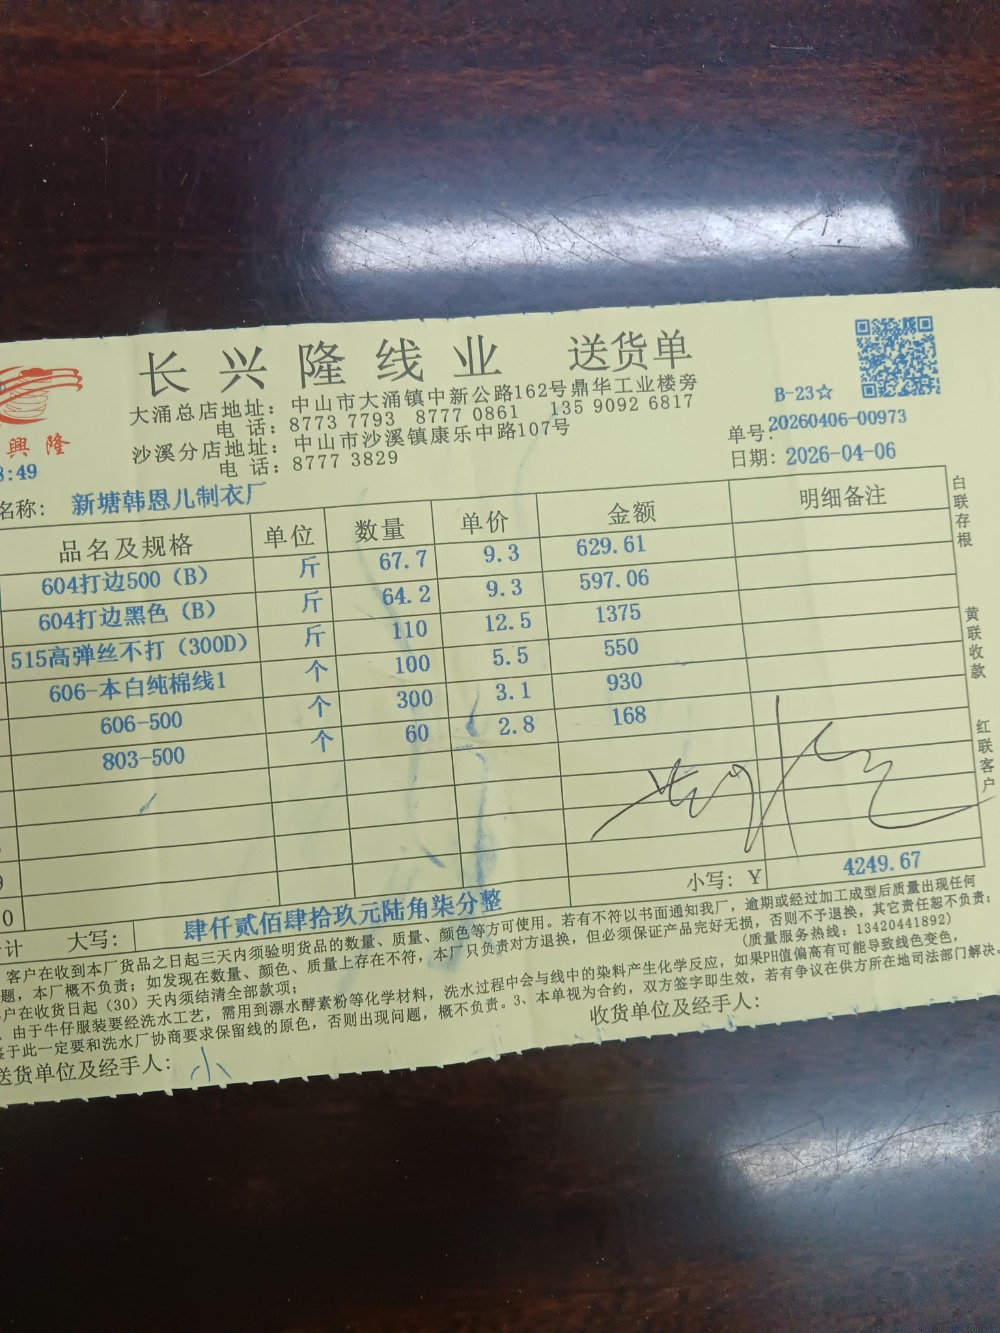 长兴隆线业 送货单
興隆
大涌总店地址：中山市大涌镇中新公路162号鼎华工业楼旁
电 话：8773 7793 8777 0861 135 9092 6817
沙溪分店地址：中山市沙溪镇康乐中路107号
电 话：8777 3829
B-23☆
单号：20260406-00973
日期：2026-04-06
:49
名称：新塘韩恩儿制衣厂
品名及规格 单位 数量 单价 金额 明细备注
604打边500（B） 斤 67.7 9.3 629.61
604打边黑色（B） 斤 64.2 9.3 597.06
515高弹丝不打（300D） 斤 110 12.5 1375
606-本白纯棉线1 个 100 5.5 550
606-500 个 300 3.1 930
803-500 个 60 2.8 168
9
0
计 大写：肆仟贰佰肆拾玖元陆角柒分整 小写：￥ 4249.67
白联存根
黄联收款
红联客户
客户在收到本厂货品之日起三天内须验明货品的数量、质量、颜色等方可使用。若有不符以书面通知我厂，逾期或经过加工成型后质量出现任何
题，本厂概不负责；如发现在数量、颜色、质量上存在不符，本厂只负责对方退换，但必须保证产品完好无损，否则不予退换，其它责任恕不负责；
户在收货日起（30）天内须结清全部款项； （质量服务热线：13420441892）
由于牛仔服装要经洗水工艺，需用到漂水酵素粉等化学材料，洗水过程中会与线中的染料产生化学反应，如果PH值偏高有可能导致线色变色，
鉴于此一定要和洗水厂协商要求保留线的原色，否则出现问题，概不负责。3、本单视为合约，双方签字即生效，若有争议在供方所在地司法部门解决。
送货单位及经手人：小 收货单位及经手人：